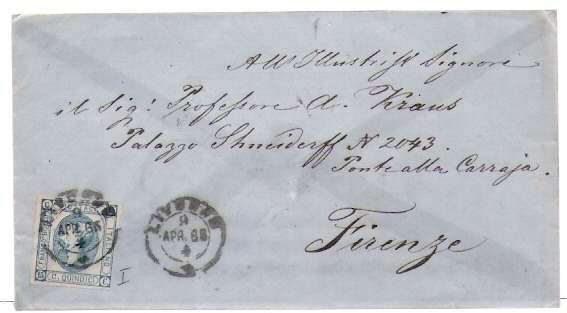 All' Illustriss Signore
il Sig! Professore A. Kraus
Palazzo Shneiderff N 2043.
Ponte alla Carraja.
Firenze
LIVORNO
APR. 66
LIVORNO
8
APR. 66
C. QUINDICI
C
I